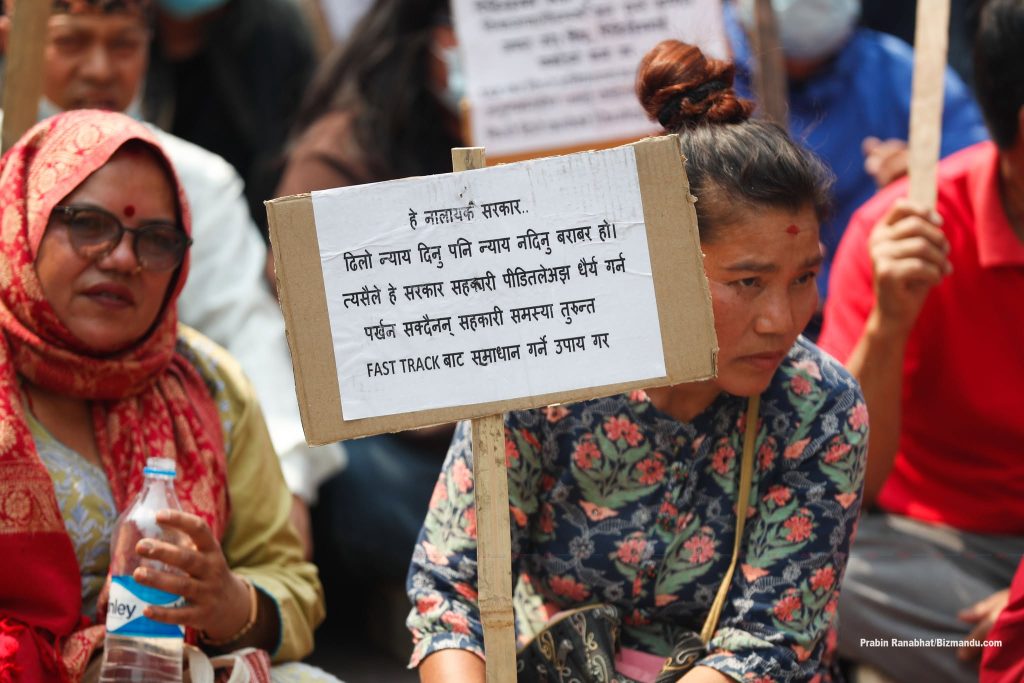 हे नालायक सरकार..
ढिलो न्याय दिनु पनि न्याय नदिनु बराबर हो।
त्यसैले हे सरकार सहकारी पीडितलेअझ धैर्य गर्न
पर्खन सक्दैनन् सहकारी समस्या तुरुन्त
FAST TRACK बाट समाधान गर्ने उपाय गर
nley
Prabin Ranabhat/Bizmandu.com